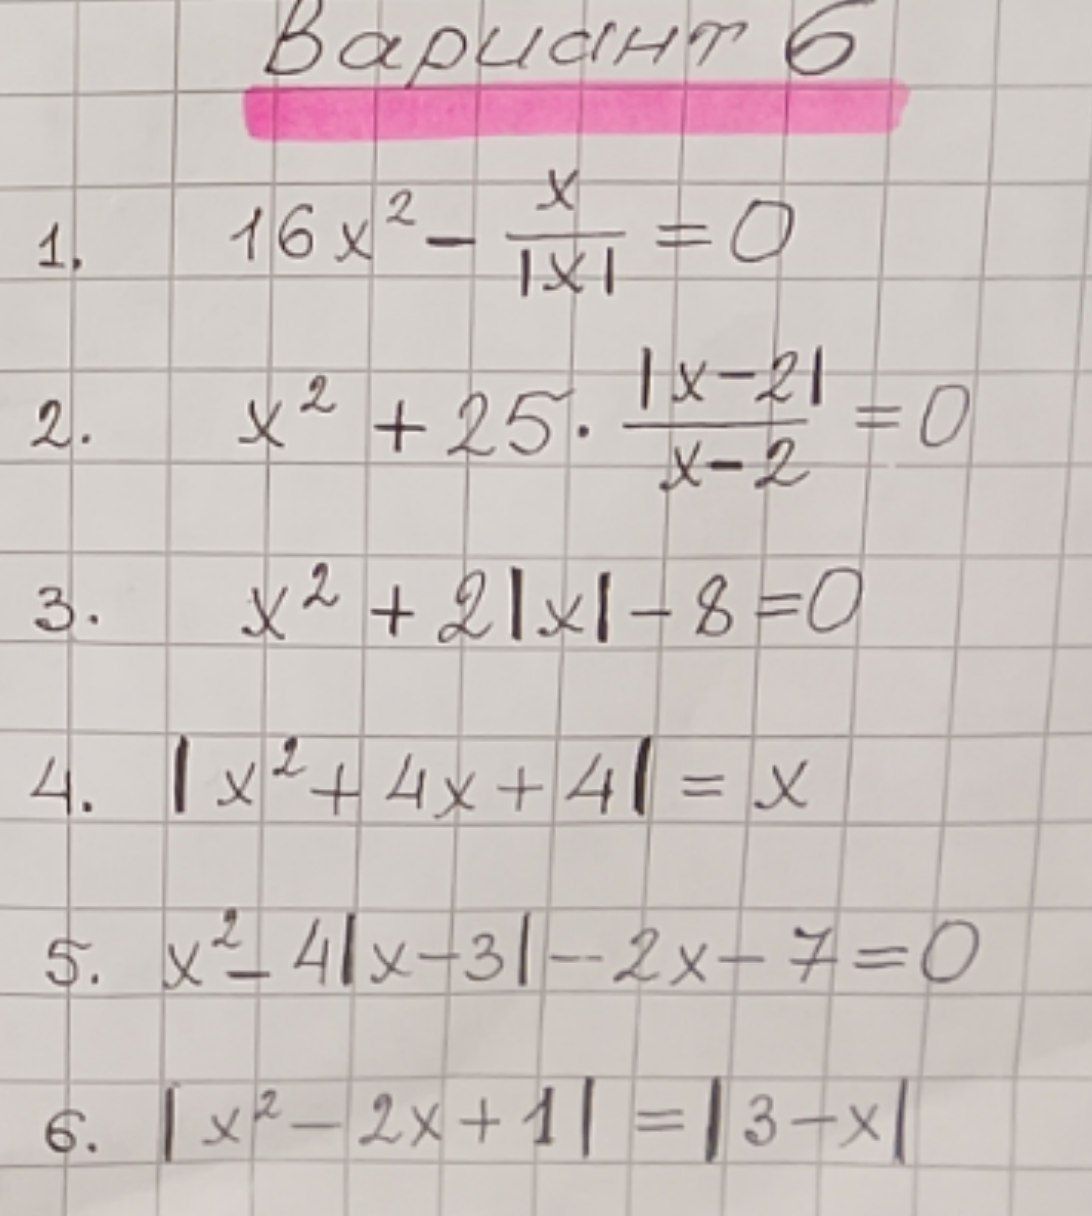 Вариант 6
1. 16x² - x/|x| = 0
2. x² + 25 · |x-2|/(x-2) = 0
3. x² + 2|x| - 8 = 0
4. |x² + 4x + 4| = x
5. x² - 4|x-3| - 2x - 7 = 0
6. |x² - 2x + 1| = |3-x|